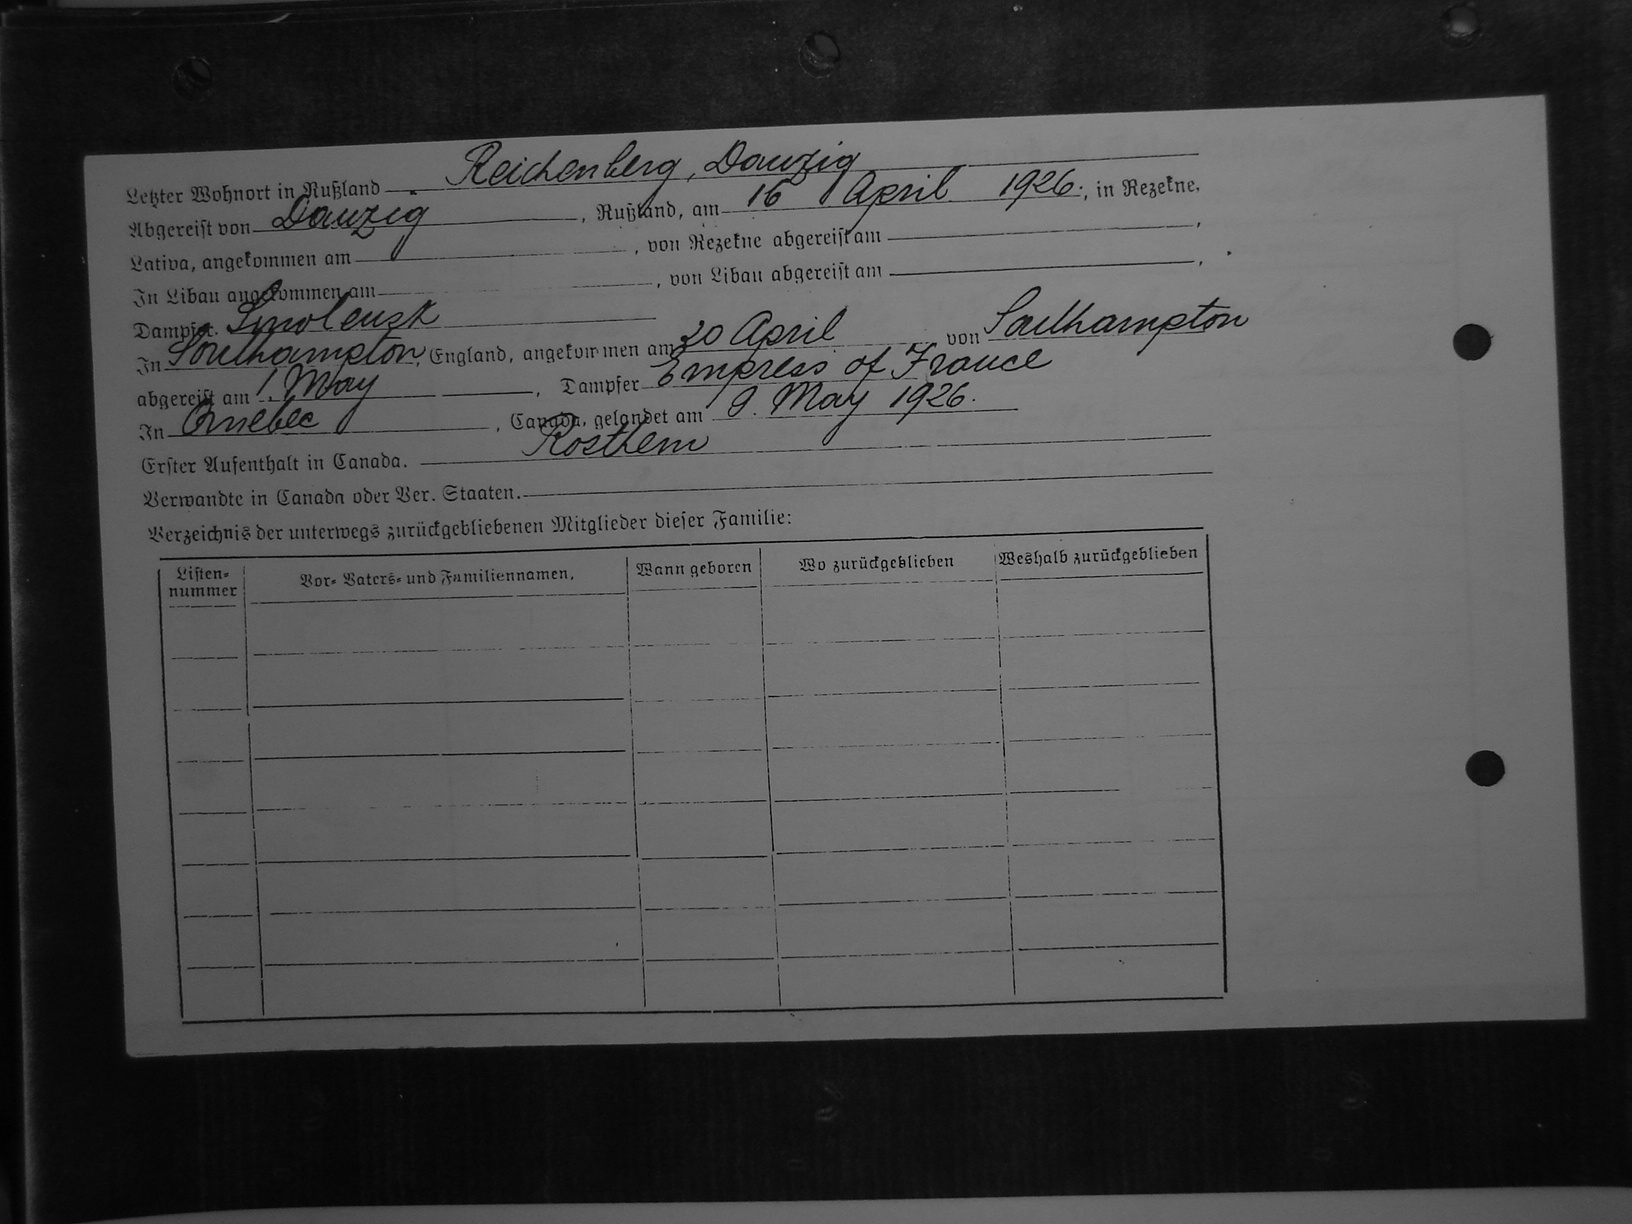 Letzter Wohnort in Rußland Reichenberg, Danzig
Abgereist von Danzig, Rußland, am 16 April 1926., in Rezekne,
Lativa, angekommen am , von Rezekne abgereist am ,
In Libau angekommen am , von Libau abgereist am ,
Dampfer. Smolensk
In Southampton, England, angekommen am 20 April von Southampton
abgereist am 1. May , Dampfer Empress of France
In Quebec , Canada, gelandet am 9. May 1926.
Erster Aufenthalt in Canada. Rosthern
Verwandte in Canada oder Ver. Staaten.
Verzeichnis der unterwegs zurückgebliebenen Mitglieder dieser Familie:
Listen-nummer Vor- Vaters- und Familiennamen, Wann geboren Wo zurückgeblieben Weshalb zurückgeblieben